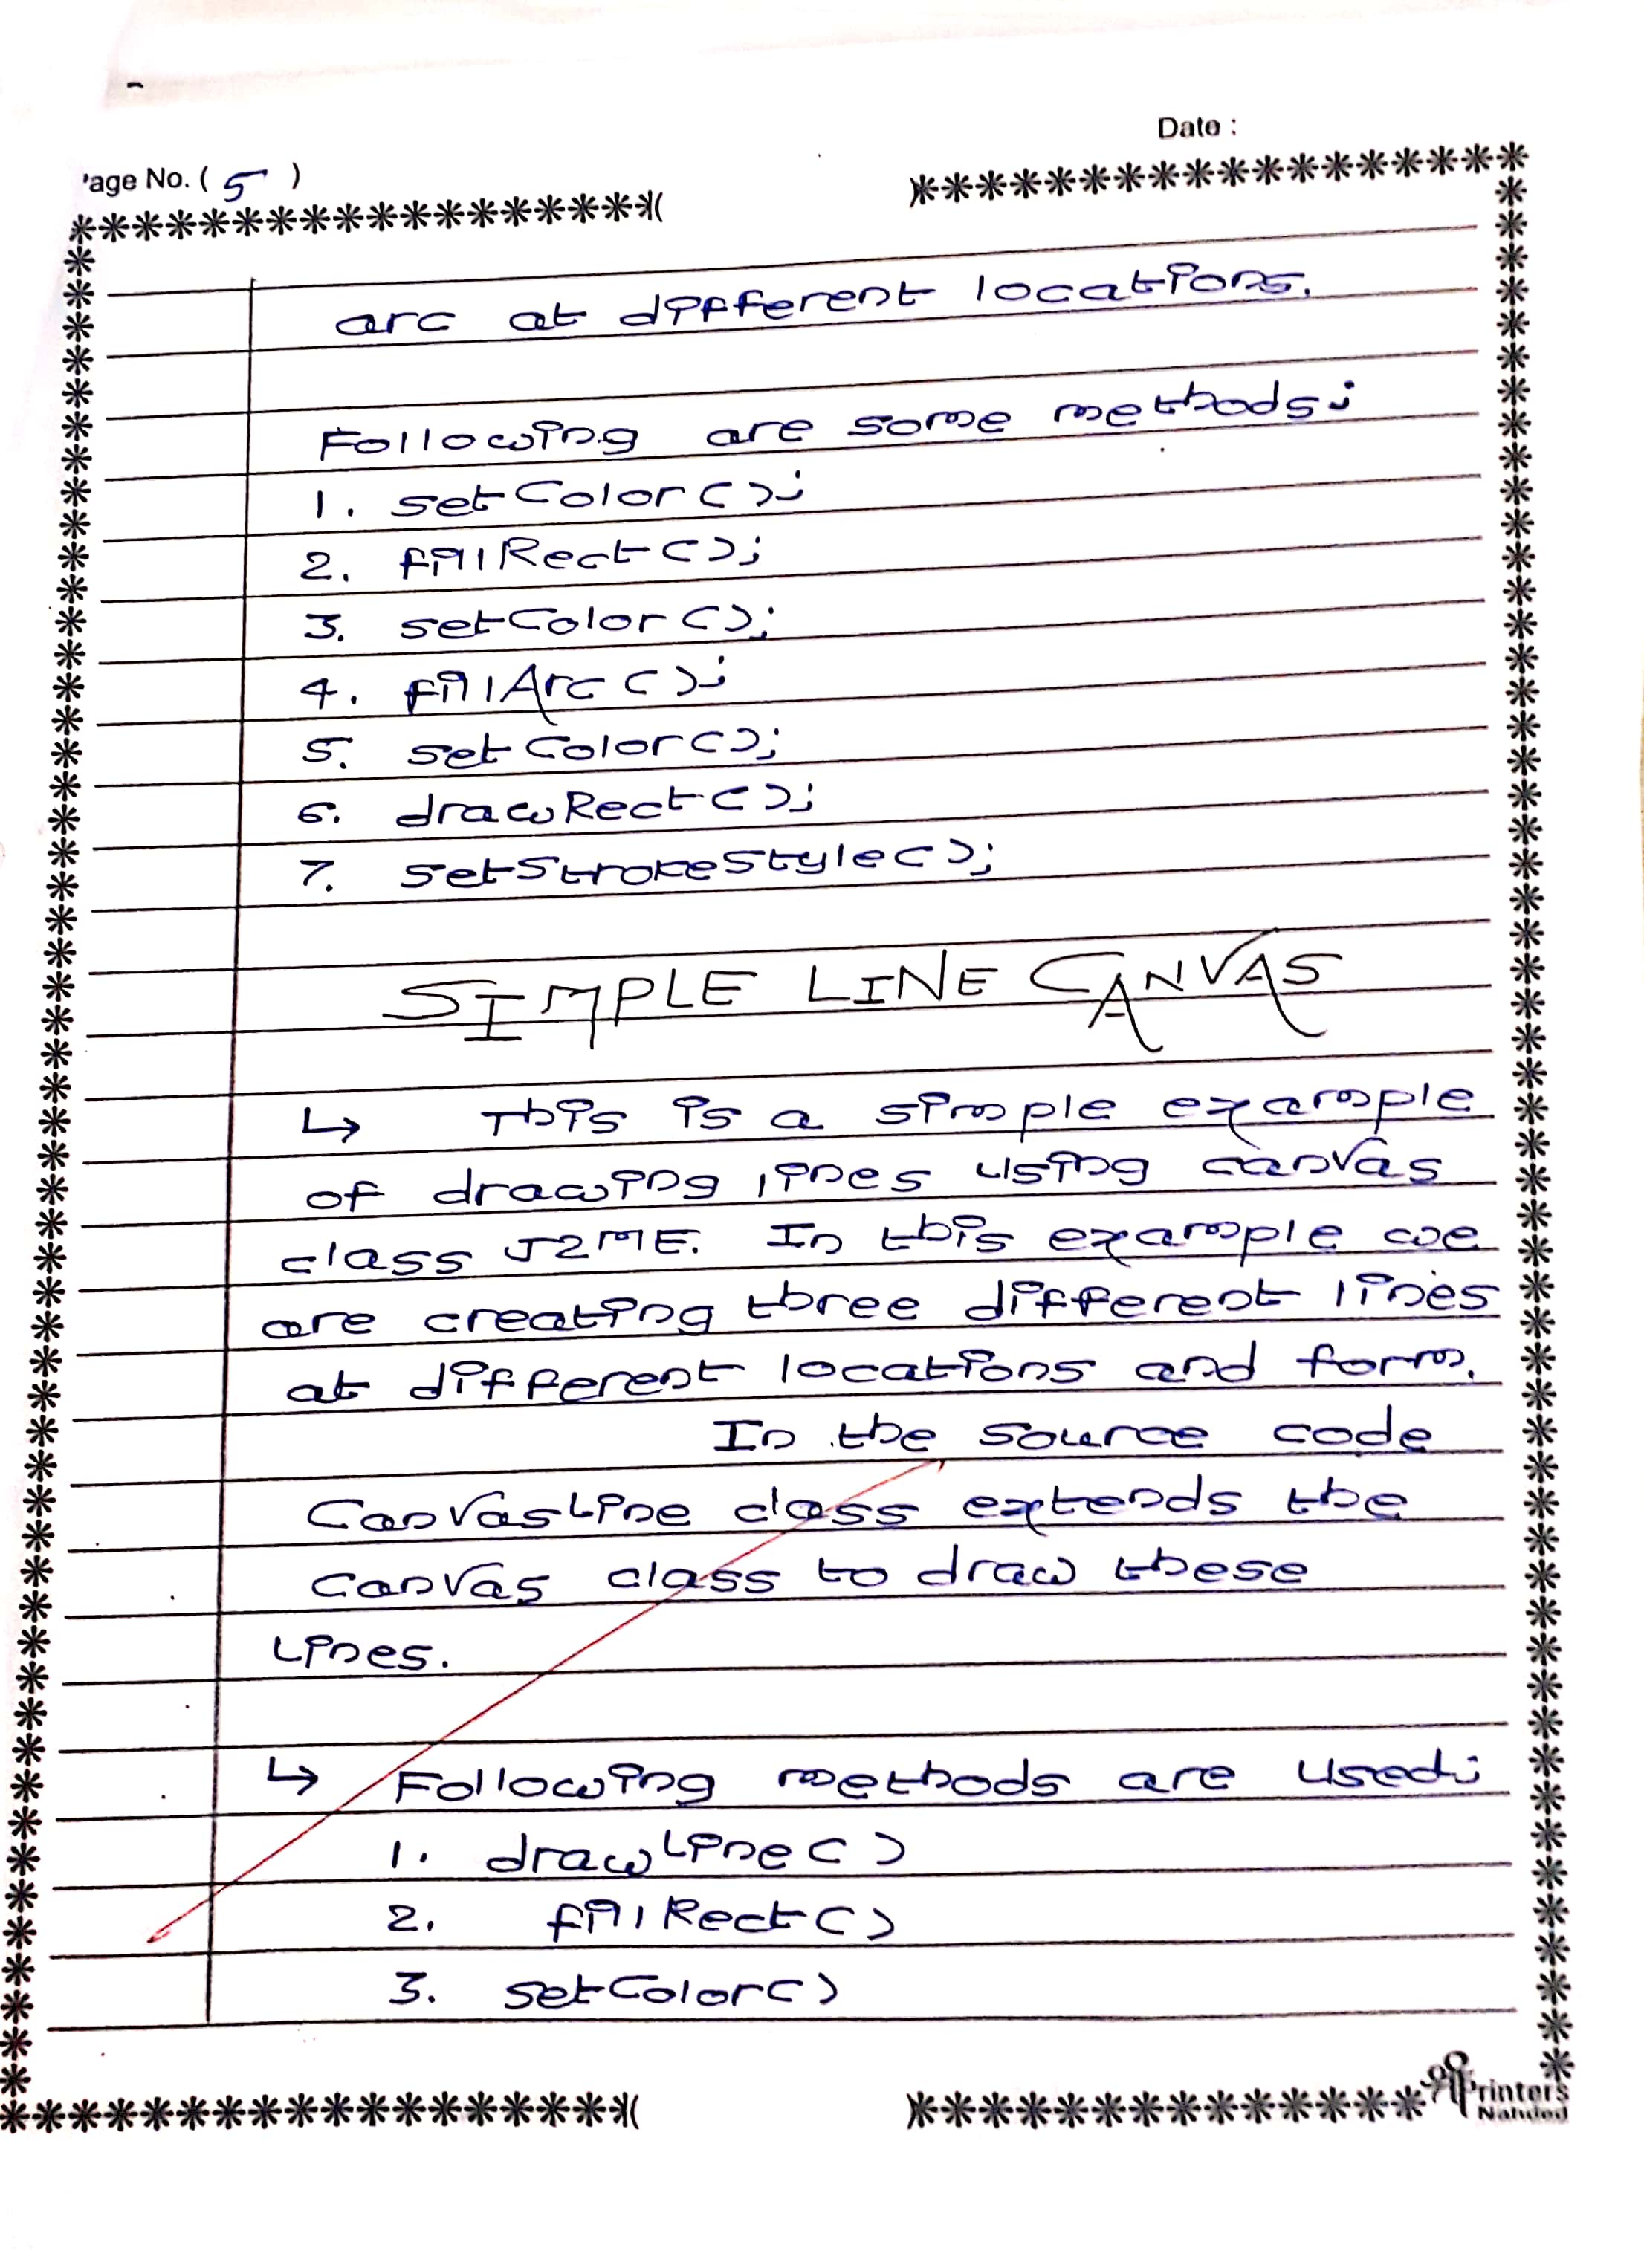 Date :
'age No. ( 5 )
arc at different locations.
Following are some methods:
1. setColor();
2. fillRect();
3. setColor();
4. fillArc();
5. setColor();
6. drawRect();
7. setStrokeStyle();
SIMPLE LINE CANVAS
↳ This is a simple example
of drawing lines using canvas
class J2ME. In this example we
are creating three different lines
at different locations and form.
In the source code
CanvasLine class extends the
canvas class to draw these
Lines.
↳ Following methods are used:
1. drawLine()
2. fillRect()
3. setColor()
Printers